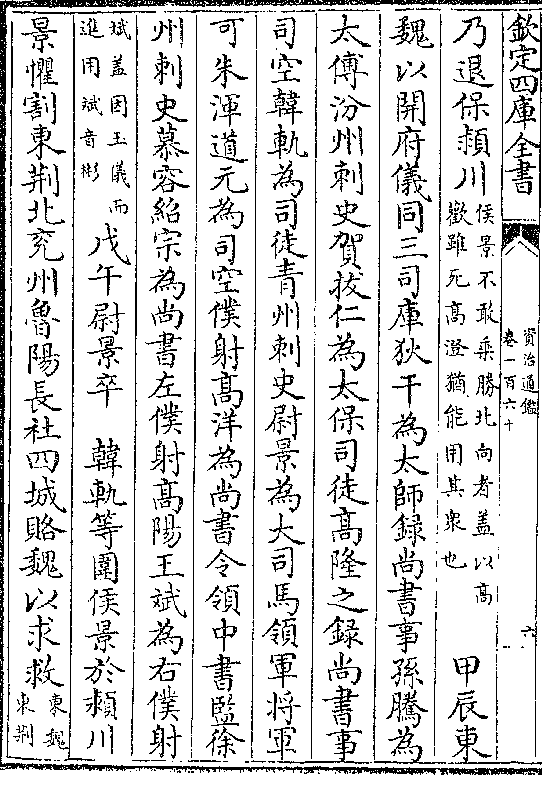 欽定四庫全書
資治通鑑
卷一百六十
六
乃退保頴川侯景不敢乗勝北向者盖以高
歡雖死高澄猶能用其衆也
甲辰東
魏以開府儀同三司庫狄干為太師録尚書事孫騰為
太傅汾州刺史賀抜仁為太保司徒髙隆之録尚書事
司空韓軌為司徒青州刺史尉景為大司馬領軍将軍
可朱渾道元為司空僕射髙洋為尚書令領中書監徐
州刺史慕容紹宗為尚書左僕射髙陽王斌為右僕射
斌盖因王儀而
進用斌音彬
戊午尉景卒 韓軌等圍侯景於頴川
景懼割東荆北兖州魯陽長社四城賂魏以求救東魏
東荆